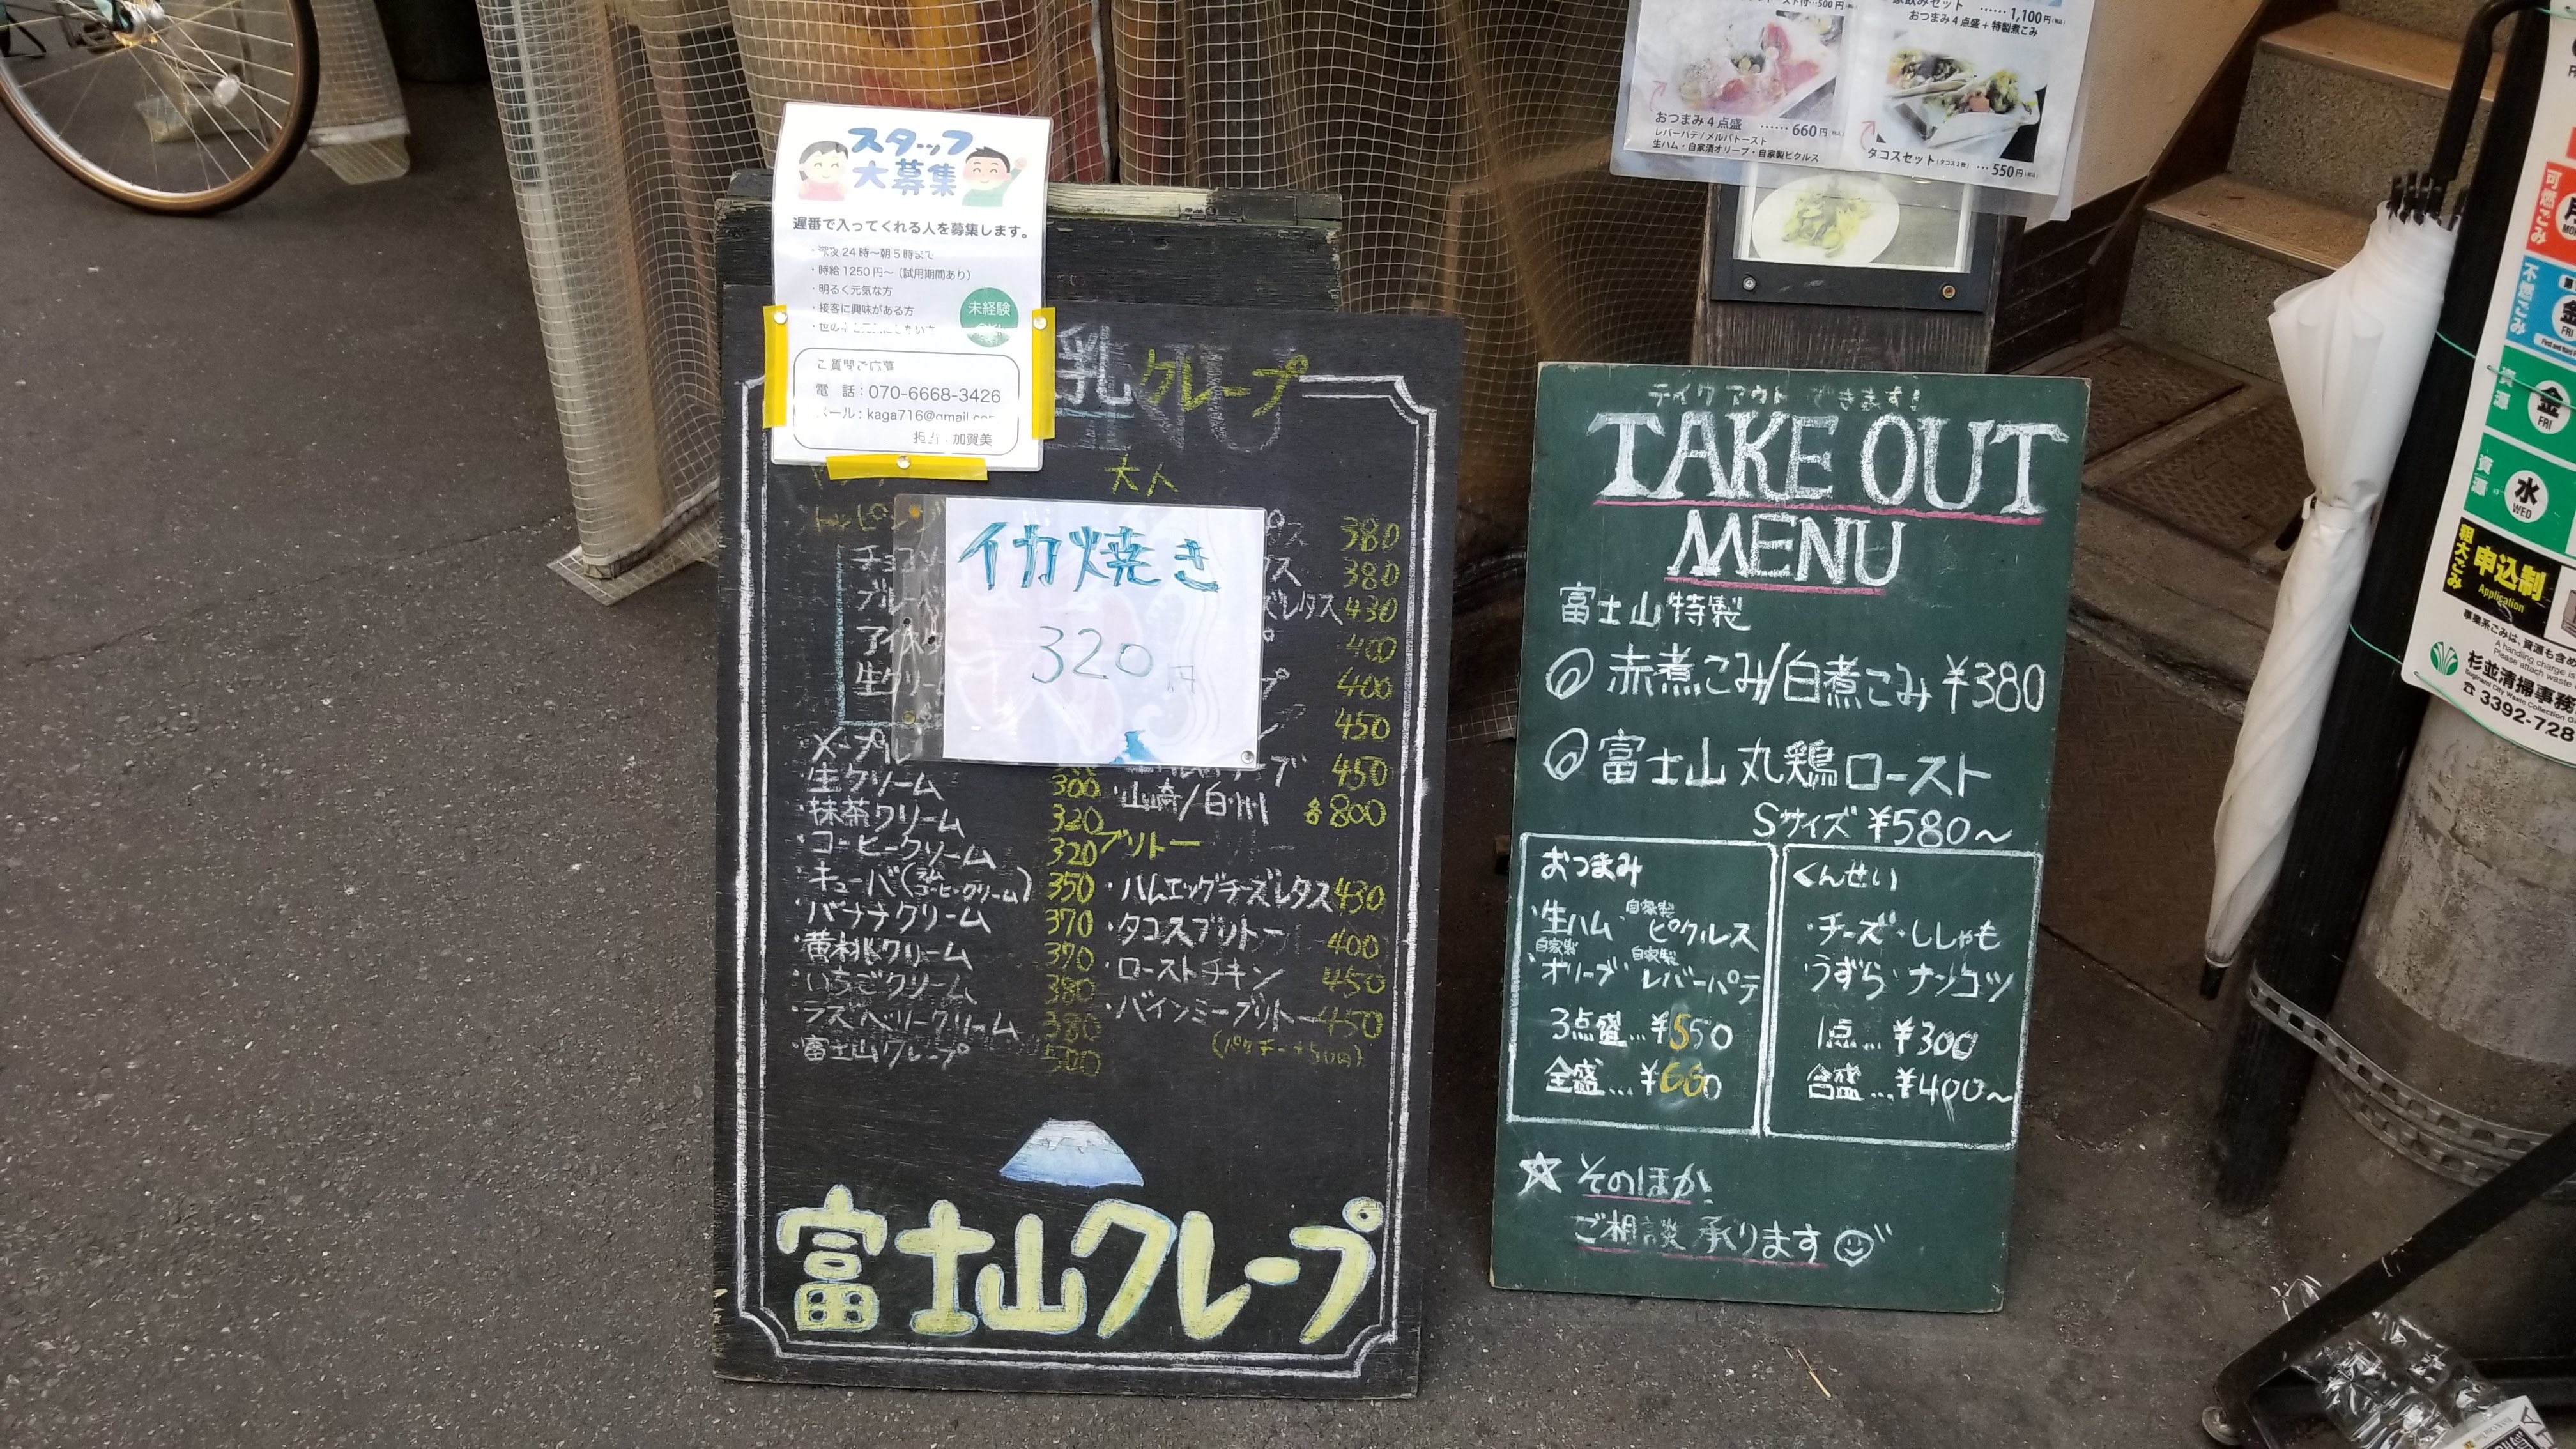 スタッフ
大募集
遅番で入ってくれる人を募集します。
・時給1250円〜(試用期間あり)
・明るく元気な方
・接客に興味がある方
未経験
ご質問ご応募
電 話:070-6668-3426
メール:kaga716@gmail.com
担当:加賀美
乳クレープ
大人
イカ焼き
320円
380
380
レタス 430
400
400
450
450
・生クリーム 300
・抹茶クリーム 320
・コーヒークリーム 320
・キューバ(ラムコーヒークリーム) 350
・バナナクリーム 370
・黄桃クリーム 370
・いちごクリーム 380
・ラズベリークリーム 380
・富士山クレープ 500
・山崎/白州 各800
ブリトー
・ハムエッグチーズレタス 430
・タコスブリトー 400
・ローストチキン 450
・バインミーブリトー 450
(パクチー+50円)
富士山クレープ
1,100円(税込)
おつまみ4点盛+特製煮こみ
おつまみ4点盛 ……660円(税込)
レバーパテ/メルバトースト
生ハム・自家漬オリーブ・自家製ピクルス
タコスセット(タコス2枚) …550円(税込)
テイクアウトできます!
TAKE OUT
MENU
富士山特製
◎赤煮こみ/白煮こみ ¥380
◎富士山丸鶏ロースト
Sサイズ ¥580〜
おつまみ
・生ハム ・自家製ピクルス
・自家製オリーブ ・自家製レバーパテ
3点盛…¥550
全盛…¥660
くんせい
・チーズ・ししゃも
・うずら・ナンコツ
1点…¥300
合盛…¥400〜
☆そのほか
ご相談承ります
可燃ごみ
不燃ごみ
金
FRI
資源
金
FRI
資源
水
WED
粗大ごみ
申込制
Application
杉並清掃事務
3392-728